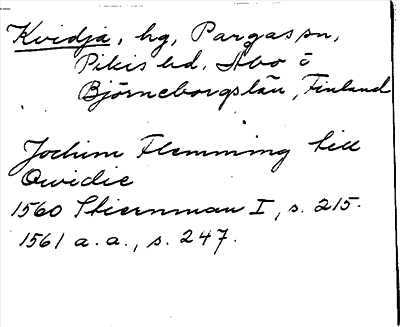 Kvidja, hg, Pargas sn,
Pikis hd. Åbo o
Björneborgs län, Finland
Jochim Flemming till
Qwidie
1560 Stiernman I, s. 215.
1561 a.a., s. 247.